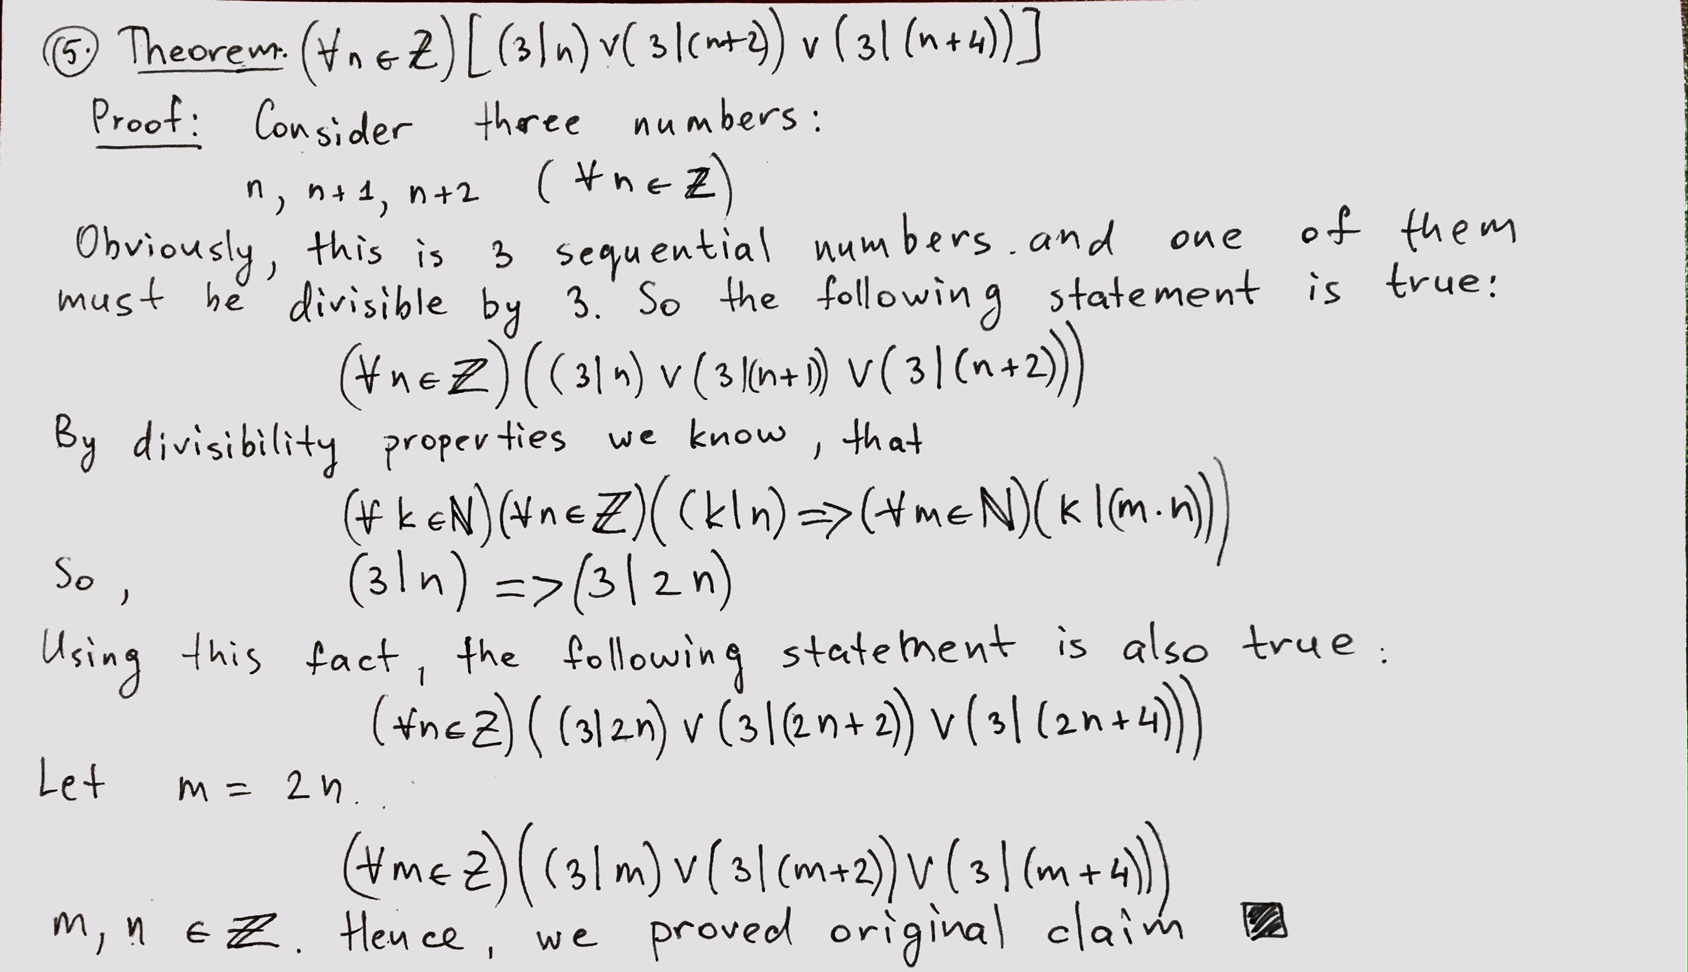 ⑤. Theorem. (∀n∈ℤ)[(3|n)∨(3|(n+2))∨(3|(n+4))]
Proof: Consider three numbers:
n, n+1, n+2 (∀n∈ℤ)
Obviously, this is 3 sequential numbers. and one of them
must be divisible by 3. So the following statement is true:
(∀n∈ℤ)((3|n)∨(3|(n+1))∨(3|(n+2)))
By divisibility properties we know, that
(∀k∈ℕ)(∀n∈ℤ)((k|n)=>(∀m∈ℕ)(k|(m·n)))
So, (3|n) => (3|2n)
Using this fact, the following statement is also true:
(∀n∈ℤ)((3|2n)∨(3|(2n+2))∨(3|(2n+4)))
Let m = 2n.
(∀m∈ℤ)((3|m)∨(3|(m+2))∨(3|(m+4)))
m, n ∈ ℤ. Hence, we proved original claim